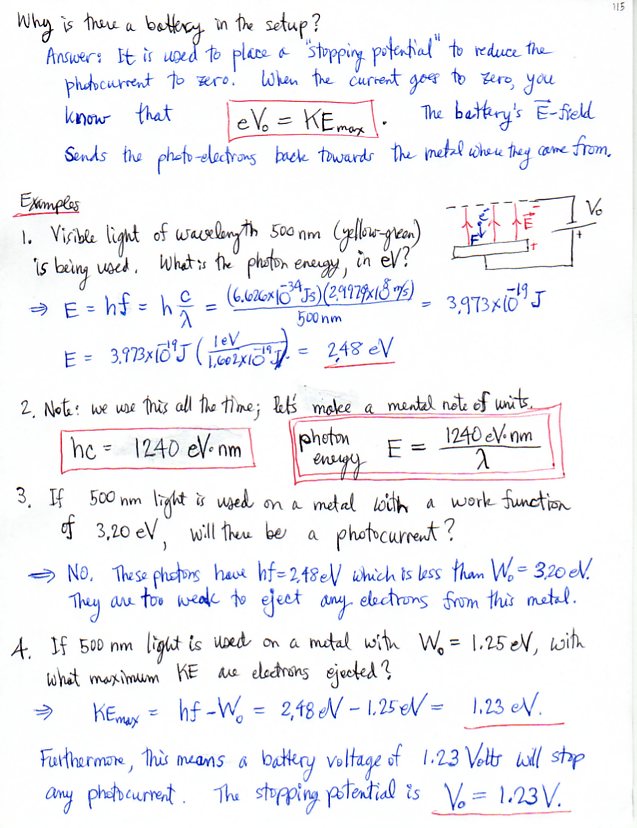 115
Why is there a battery in the setup?
Answer: It is used to place a "stopping potential" to reduce the
photocurrent to zero. When the current goes to zero, you
know that eV₀ = KEmax. The battery's E-field
sends the photo-electrons back towards the metal where they came from.
Examples
1. Visible light of wavelength 500 nm (yellow-green)
is being used. What is the photon energy, in eV?
e⁻ E F + V₀ +
⇒ E = hf = h c/λ = (6.626×10⁻³⁴Js)(2.9979×10⁸ m/s) / 500nm = 3.973×10⁻¹⁹ J
E = 3.973×10⁻¹⁹ J (1eV / 1.602×10⁻¹⁹ J) = 2.48 eV
2. Note: we use this all the time; let's make a mental note of units.
hc = 1240 eV·nm
photon energy E = 1240 eV·nm / λ
3. If 500 nm light is used on a metal with a work function
of 3.20 eV, will there be a photocurrent?
⇒ No. These photons have hf = 2.48eV which is less than W₀ = 3.20 eV.
They are too weak to eject any electrons from this metal.
4. If 500 nm light is used on a metal with W₀ = 1.25 eV, with
what maximum KE are electrons ejected?
⇒ KEmax = hf − W₀ = 2.48 eV − 1.25 eV = 1.23 eV.
Furthermore, this means a battery voltage of 1.23 Volts will stop
any photocurrent. The stopping potential is V₀ = 1.23 V.